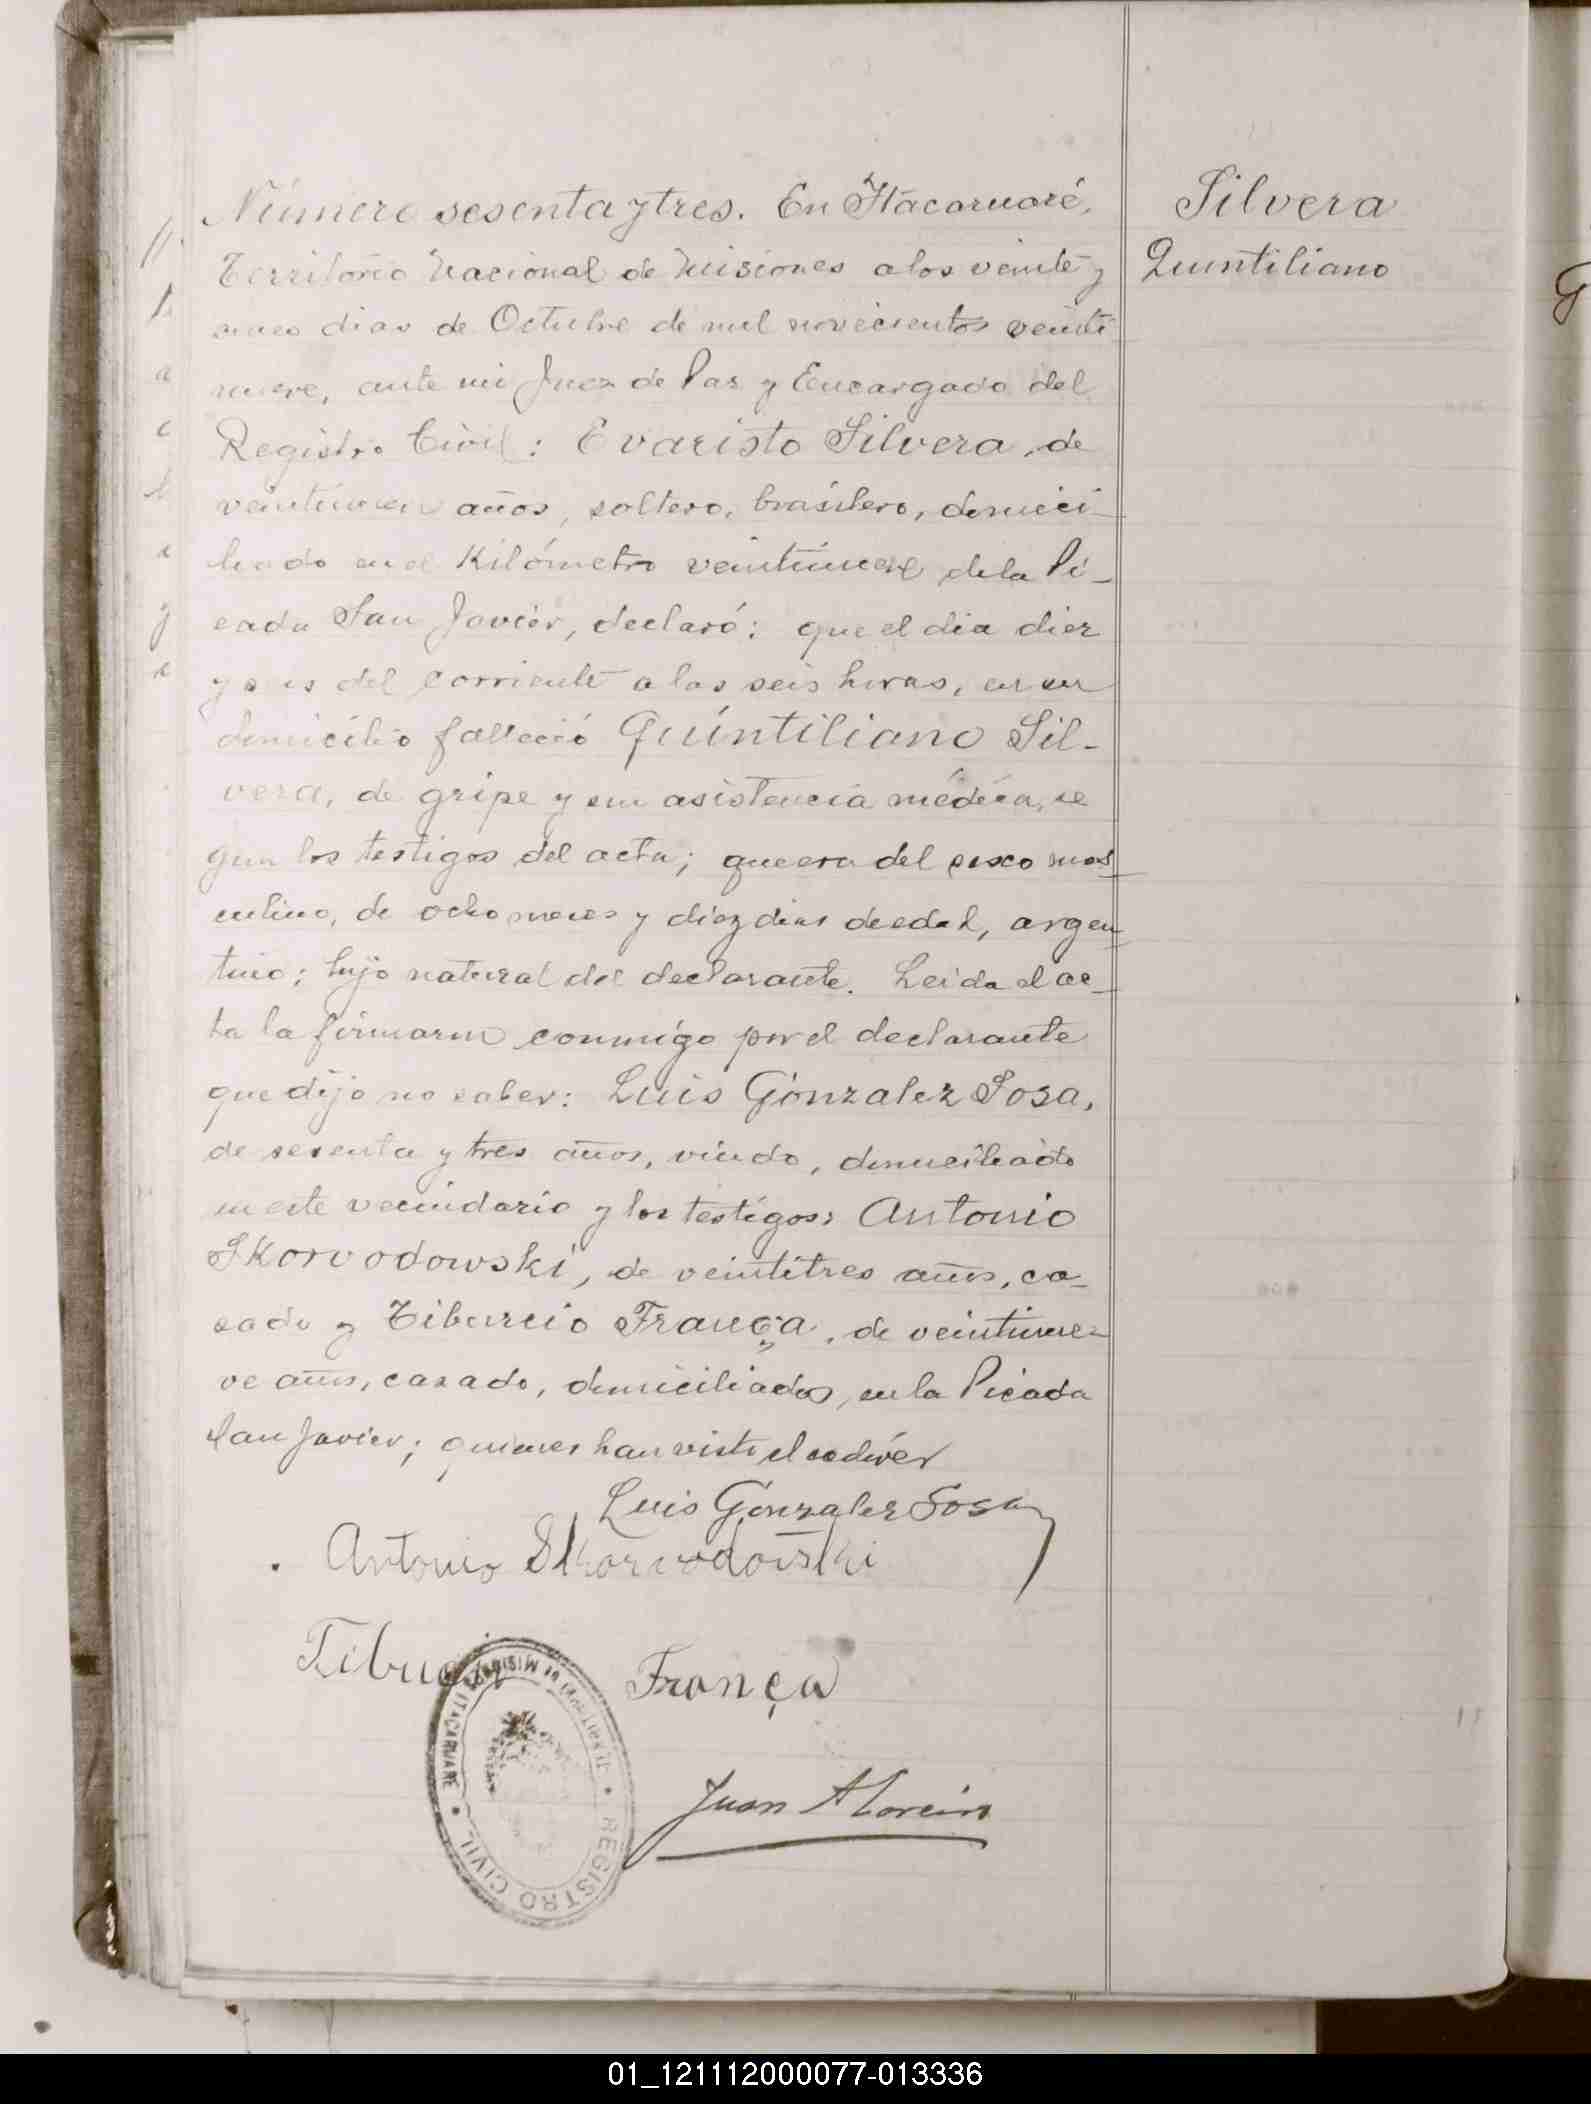 Silvera
Quintiliano
Número sesenta y tres. En Itacaruaré,
Territorio Nacional de Misiones a los veinte y
cinco dias de Octubre de mil novecientos veinti
nueve, ante mi Juez de Paz y Encargado del
Registro Civil: Evaristo Silvera, de
años, soltero, brasilero, domici-
liado en el Kilómetro veintinueve de la Pi-
cada San Javier, declaró: que el dia diez
y seis del corriente a las seis horas, en su
domicilio falleció Quintiliano Sil-
vera, de gripe y sin asistencia médica, se
gun los testigos del acta; que era del sexo mas
culino, de ocho meses y diez dias de edad, argen-
tino; hijo natural del declarante. Leida el ac-
ta la firmaron conmigo por el declarante
que dijo no saber: Luis Gonzalez Sosa,
de sesenta y tres años, viudo, domiciliado
en este vecindario y los testigos: Antonio
Skorvodowski, de veintitres años, ca-
sado y Tiburcio França, de veintinue-
ve años, casado, domiciliados, en la Picada
San Javier; quienes han visto el cadáver
Luis Gonzalez Sosa
Antonio Skorwodowski
França
Juan
REGISTRO CIVIL ITACARUARE MISIONES
01_121112000077-013336